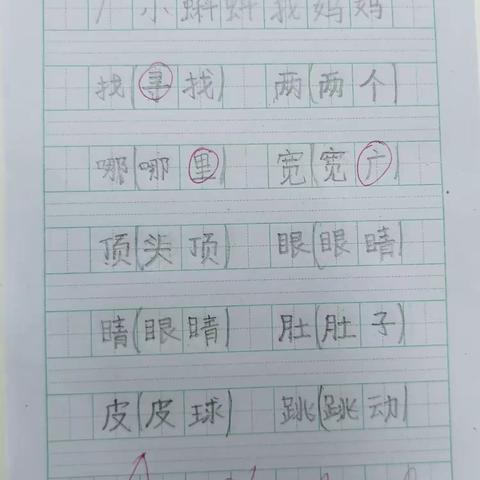 小蝌蚪找妈妈
找(寻找) 两(两个)
哪(哪里) 宽(宽广)
顶(头顶) 眼(眼睛)
睛(眼睛) 肚(肚子)
皮(皮球) 跳(跳动)